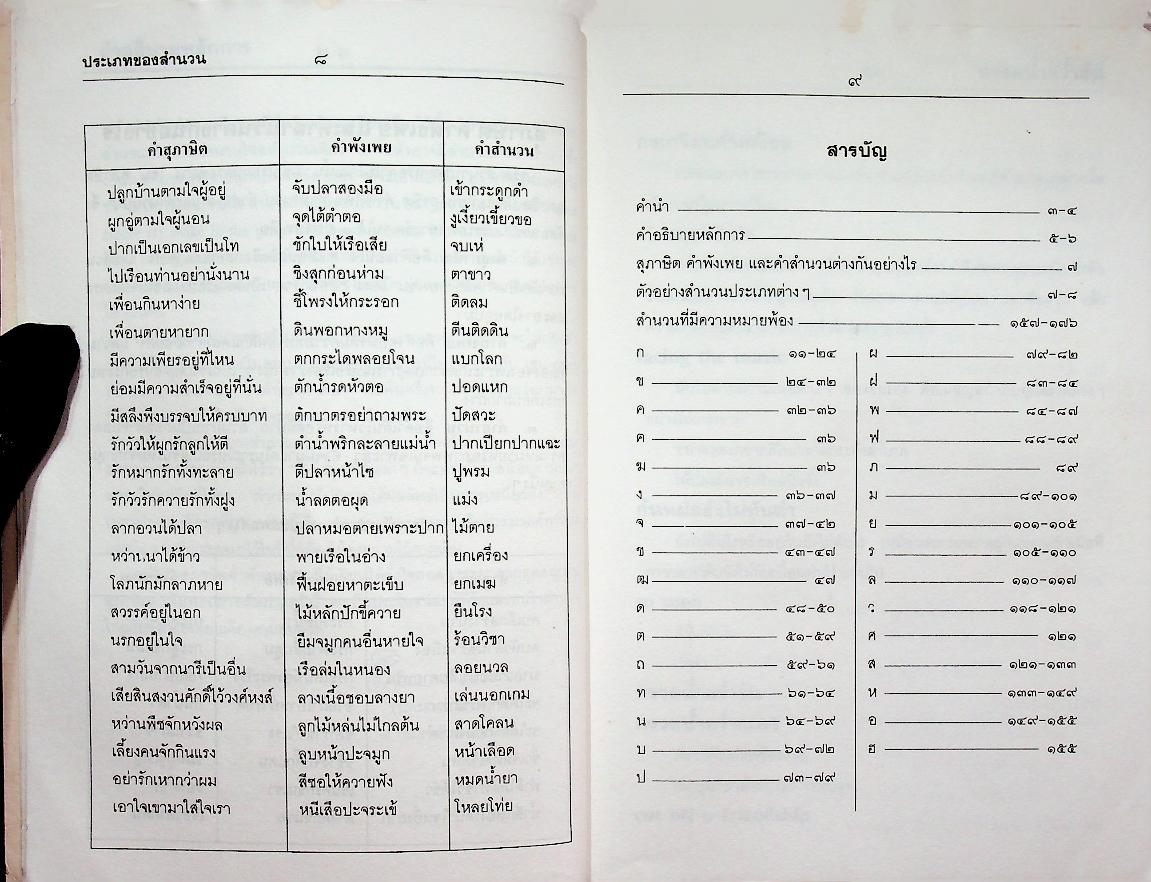 ประเภทของสำนวน ๘
คำสุภาษิต คำพังเพย คำสำนวน
ปลูกบ้านตามใจผู้อยู่ จับปลาสองมือ เข้ากระดูกดำ
ผูกอู่ตามใจผู้นอน จุดไต้ตำตอ งูเงี้ยวเขี้ยวขอ
ปากเป็นเอกเลขเป็นโท ชักใบให้เรือเสีย จบเห่
ไปเรือนท่านอย่านั่งนาน ชิงสุกก่อนห่าม ตาขาว
เพื่อนกินหาง่าย ชี้โพรงให้กระรอก ติดลม
เพื่อนตายหายาก ดินพอกหางหมู ตีนติดดิน
มีความเพียรอยู่ที่ไหน ตกกระไดพลอยโจน แบกโลก
ย่อมมีความสำเร็จอยู่ที่นั่น ตักน้ำรดหัวตอ ปอดแหก
มีสลึงพึงบรรจบให้ครบบาท ตักบาตรอย่าถามพระ ปัดสวะ
รักวัวให้ผูกรักลูกให้ตี ตำน้ำพริกละลายแม่น้ำ ปากเปียกปากแฉะ
รักหมากรักทั้งทะลาย ตีปลาหน้าไซ ปูพรม
รักวัวรักควายรักทั้งฝูง น้ำลดตอผุด แม่ง
ลากอวนได้ปลา ปลาหมอตายเพราะปาก ไม้ตาย
หว่านนาได้ข้าว พายเรือในอ่าง ยกเครื่อง
โลภนักมักลาภหาย ฟื้นฝอยหาตะเข็บ ยกเมฆ
สวรรค์อยู่ในอก ไม้หลักปักขี้ควาย ยืนโรง
นรกอยู่ในใจ ยืมจมูกคนอื่นหายใจ ร้อนวิชา
สามวันจากนารีเป็นอื่น เรือล่มในหนอง ลอยนวล
เสียสินสงวนศักดิ์ไว้วงศ์หงส์ ลางเนื้อชอบลางยา เล่นนอกเกม
หว่านพืชจักหวังผล ลูกไม้หล่นไม่ไกลต้น สาดโคลน
เลี้ยงคนจักกินแรง ลูบหน้าปะจมูก หน้าเลือด
อย่ารักเหากว่าผม สีซอให้ควายฟัง หมดน้ำยา
เอาใจเขามาใส่ใจเรา หนีเสือปะจระเข้ โหลยโท่ย
๙
สารบัญ
คำนำ ๓-๔
คำอธิบายหลักการ ๕-๖
สุภาษิต คำพังเพย และคำสำนวนต่างกันอย่างไร ๗
ตัวอย่างสำนวนประเภทต่างๆ ๗-๘
สำนวนที่มีความหมายพ้อง ๑๕๗-๑๗๖
ก ๑๑-๒๔ ผ ๗๙-๘๒
ข ๒๔-๓๒ ฝ ๘๓-๘๔
ค ๓๒-๓๖ พ ๘๔-๘๗
ฅ ๓๖ ฟ ๘๘-๘๙
ฆ ๓๖ ภ ๘๙
ง ๓๖-๓๗ ม ๘๙-๑๐๑
จ ๓๗-๔๒ ย ๑๐๑-๑๐๕
ช ๔๓-๔๗ ร ๑๐๕-๑๑๐
ฒ ๔๗ ล ๑๑๐-๑๑๗
ด ๔๘-๕๐ ว ๑๑๘-๑๒๑
ต ๕๑-๕๙ ศ ๑๒๑
ถ ๕๙-๖๑ ส ๑๒๑-๑๓๓
ท ๖๑-๖๔ ห ๑๓๓-๑๔๙
น ๖๔-๖๙ อ ๑๔๙-๑๕๕
บ ๖๙-๗๒ ฮ ๑๕๕
ป ๗๓-๗๙